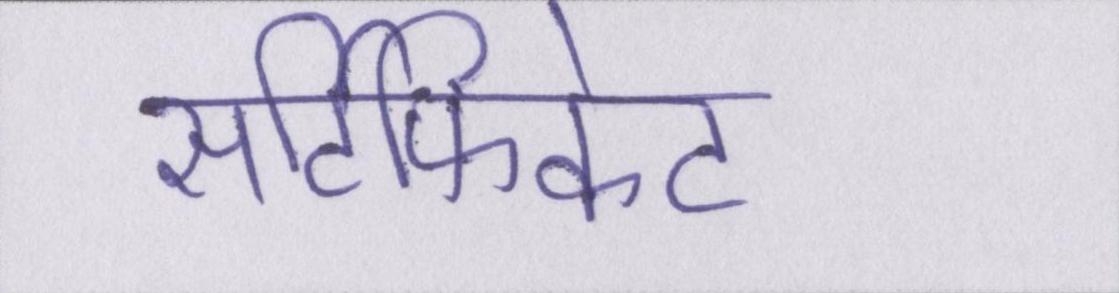 सर्टिफिकेट